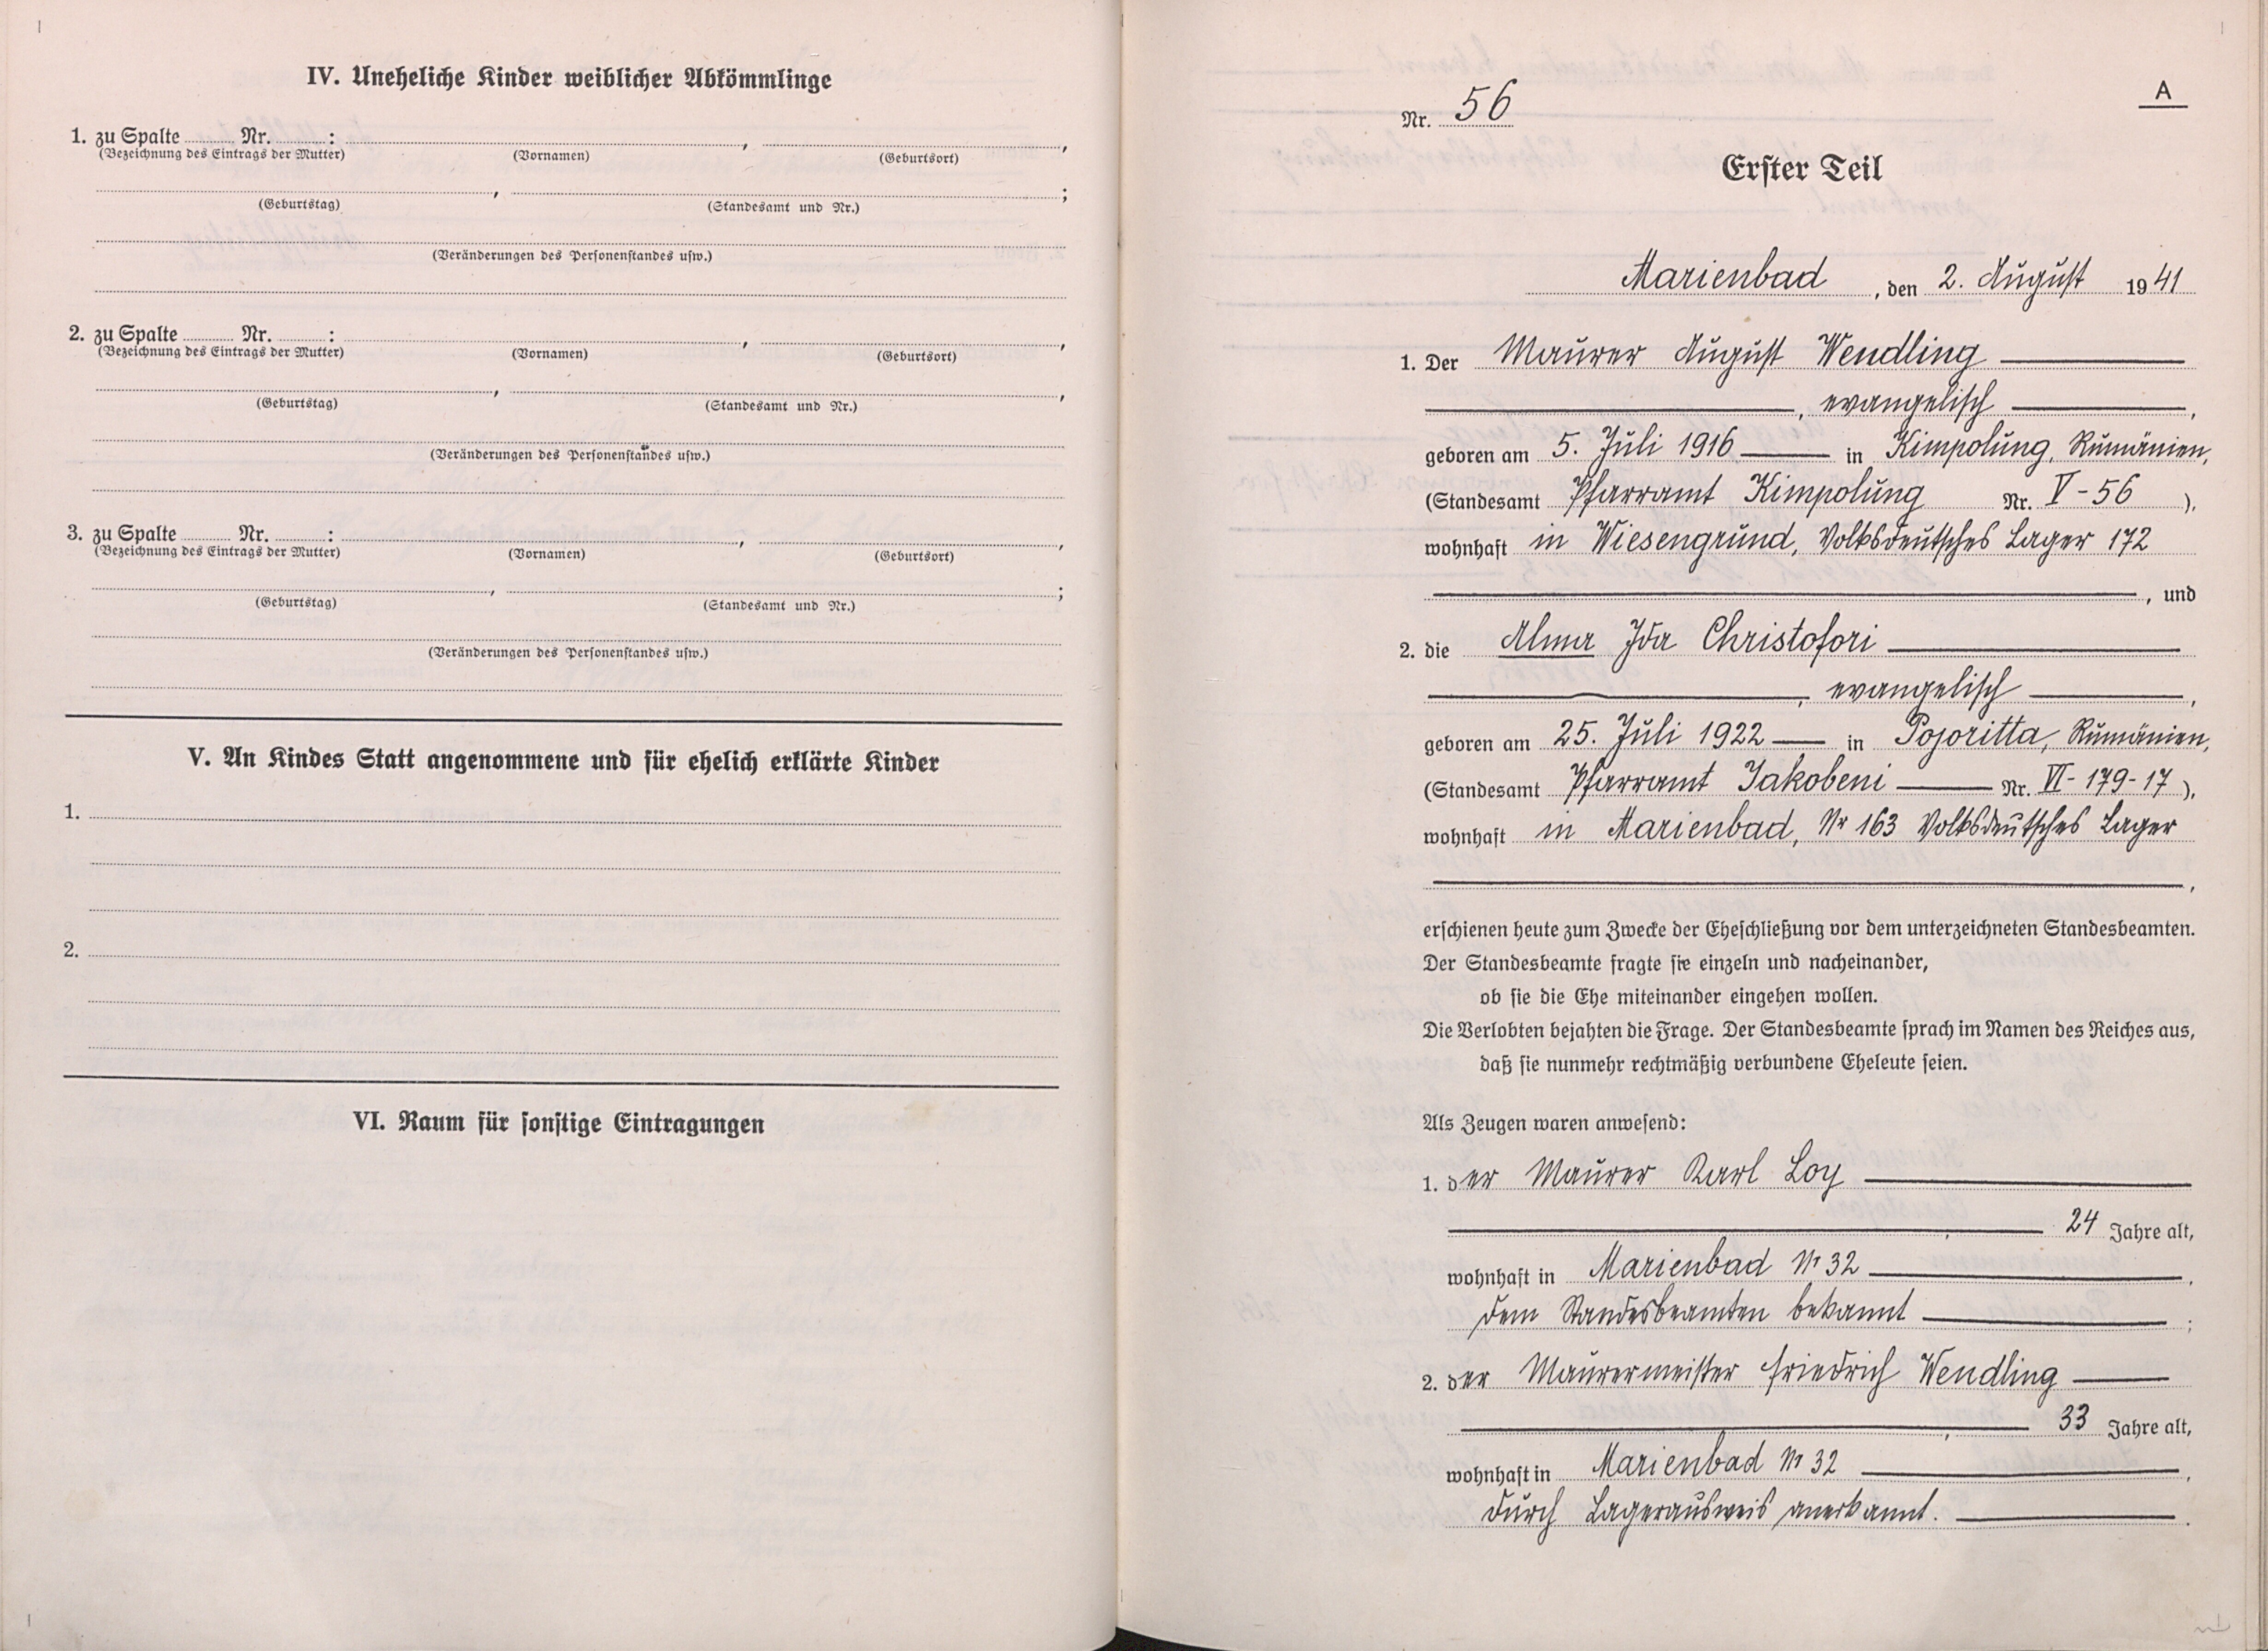 IV. Uneheliche Kinder weiblicher Abkömmlinge
1. zu Spalte ........ Nr. ........ :
(Bezeichnung des Eintrags der Mutter) (Vornamen) , (Geburtsort) ,
(Geburtstag) , (Standesamt und Nr.) ;
(Veränderungen des Personenstandes usw.)
2. zu Spalte ........ Nr. ........ :
(Bezeichnung des Eintrags der Mutter) (Vornamen) , (Geburtsort) ,
(Geburtstag) , (Standesamt und Nr.) ,
(Veränderungen des Personenstandes usw.)
3. zu Spalte ........ Nr. ........ :
(Bezeichnung des Eintrags der Mutter) (Vornamen) , (Geburtsort) ,
(Geburtstag) , (Standesamt und Nr.) ;
(Veränderungen des Personenstandes usw.)
V. An Kindes Statt angenommene und für ehelich erklärte Kinder
1.
2.
VI. Raum für sonstige Eintragungen
A
Nr. 56
Erster Teil
Marienbad , den 2. August 1941
1. Der Maurer August Wendling
, evangelisch ,
geboren am 5. Juli 1916 in Kimpolung, Rumänien,
(Standesamt Pfarramt Kimpolung Nr. V-56 ),
wohnhaft in Wiesengrund, Volksdeutsches Lager 172
, und
2. die Alma Ida Christofori
, evangelisch ,
geboren am 25. Juli 1922 in Pojoritta, Rumänien,
(Standesamt Pfarramt Jakobeni Nr. VI-179-17 ),
wohnhaft in Marienbad, Nr 163 Volksdeutsches Lager
,
erschienen heute zum Zwecke der Eheschließung vor dem unterzeichneten Standesbeamten.
Der Standesbeamte fragte sie einzeln und nacheinander,
ob sie die Ehe miteinander eingehen wollen.
Die Verlobten bejahten die Frage. Der Standesbeamte sprach im Namen des Reiches aus,
daß sie nunmehr rechtmäßig verbundene Eheleute seien.
Als Zeugen waren anwesend:
1. der Maurer Karl Loy
, 24 Jahre alt,
wohnhaft in Marienbad Nr 32 ,
dem Standesbeamten bekannt ;
2. der Maurermeister Friedrich Wendling
, 33 Jahre alt,
wohnhaft in Marienbad Nr 32 ,
durch Lagerausweis anerkannt.